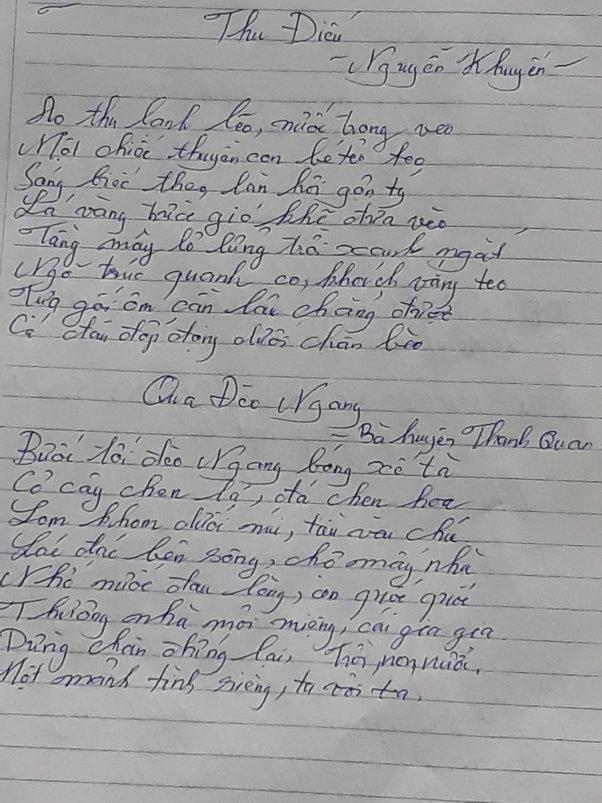 Thu Điếu
- Nguyễn Khuyến -
Ao thu lạnh lẽo, nước trong veo
Một chiếc thuyền con bé tẻo teo
Sóng biếc theo làn hơi gợn tý
Lá vàng trước gió khẽ đưa vèo
Tầng mây lơ lửng trời xanh ngắt
Ngõ trúc quanh co, khách vắng teo
Tựa gối ôm cần lâu chẳng được
Cá đâu đớp động dưới chân bèo
Qua Đèo Ngang
- Bà huyện Thanh Quan
Bước tới đèo Ngang bóng xế tà
Cỏ cây chen lá, đá chen hoa
Lom khom dưới núi, tiều vài chú
Lác đác bên sông, chợ mấy nhà
Nhớ nước đau lòng, con quốc quốc
Thương nhà mỏi miệng, cái gia gia
Dừng chân đứng lại, trời, non, nước,
Một mảnh tình riêng, ta với ta.